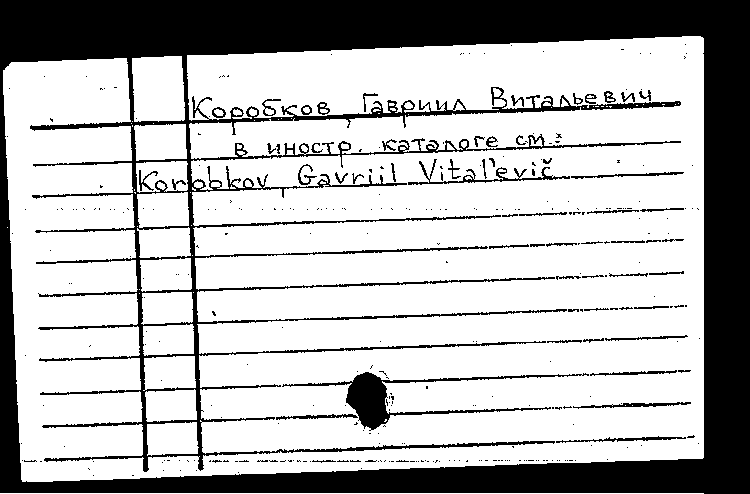 Коробков, Гавриил Витальевич
в иностр. каталоге см.:
Korobkov, Gavriil Vital'evič